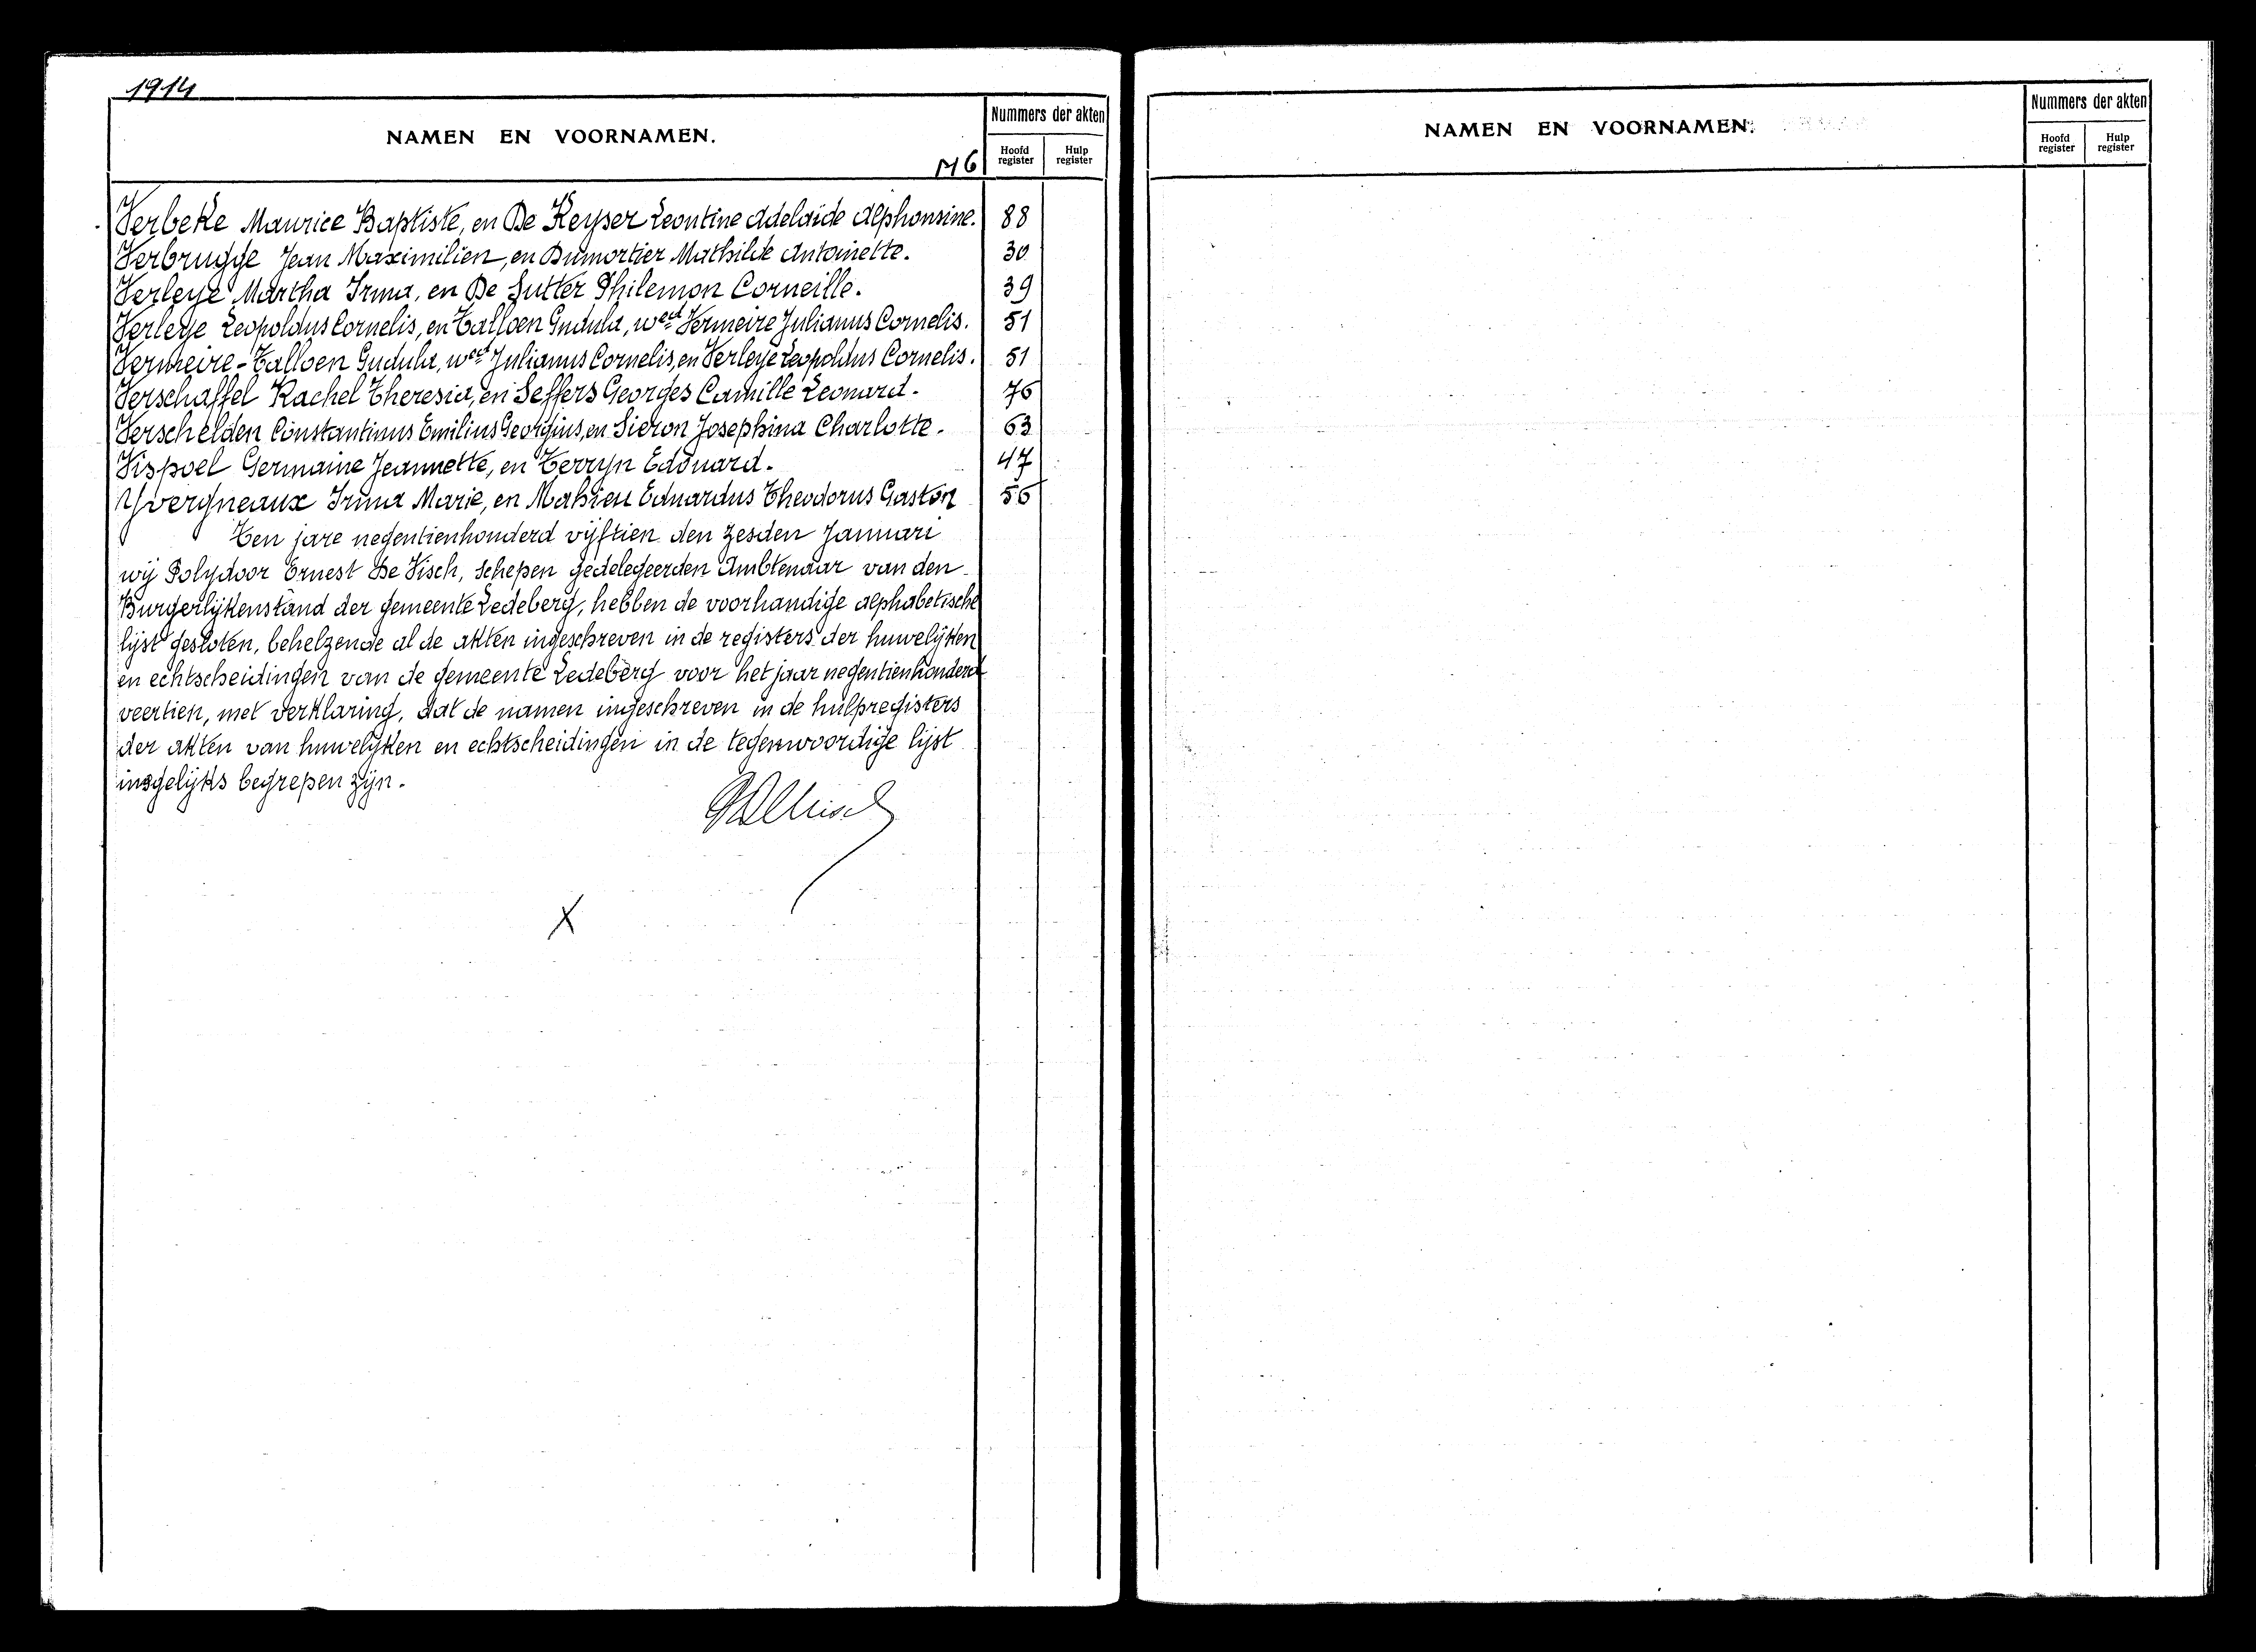 1914
NAMEN EN VOORNAMEN.
Nummers der akten
Hoofd register
Hulp register
M6
Verbeke Maurice Baptiste, en De Keyser Leontine Adelaide Alphonsine. 88
Verbrugge Jean Maximilien, en Dumortier Mathilde Antoinette. 30
Verleye Martha Irma, en De Sutter Philemon Corneille. 39
Verleye Leopoldus Cornelis, en Talloen Gudula, wed Vermeire Julianus Cornelis. 51
Vermeire-Talloen Gudula, wed Julianus Cornelis, en Verleye Leopoldus Cornelis. 51
Verschaffel Rachel Theresia, en Seffers Georges Camille Leonard. 76
Verschelden Constantinus Emilius Georgius, en Sieron Josephina Charlotte. 63
Vispoel Germaine Jeannette, en Terryn Edouard. 47
Yvergneaux Irma Marie, en Mahieu Eduardus Theodorus Gaston 56
Ten jare negentienhonderd vijftien den zesden Januari
wij Polydoor Ernest De Visch, Schepen gedelegeerden Ambtenaar van den
Burgerlijkenstand der gemeente Ledeberg, hebben de voorhandige alphabetische
lijst gesloten, behelzende al de akten ingeschreven in de registers der huwelijken
en echtscheidingen van de gemeente Ledeberg voor het jaar negentienhonderd
veertien, met verklaring, dat de namen ingeschreven in de hulpregisters
der akten van huwelijken en echtscheidingen in de tegenwoordige lijst
insgelijks begrepen zijn.
X
NAMEN EN VOORNAMEN.
Nummers der akten
Hoofd register
Hulp register